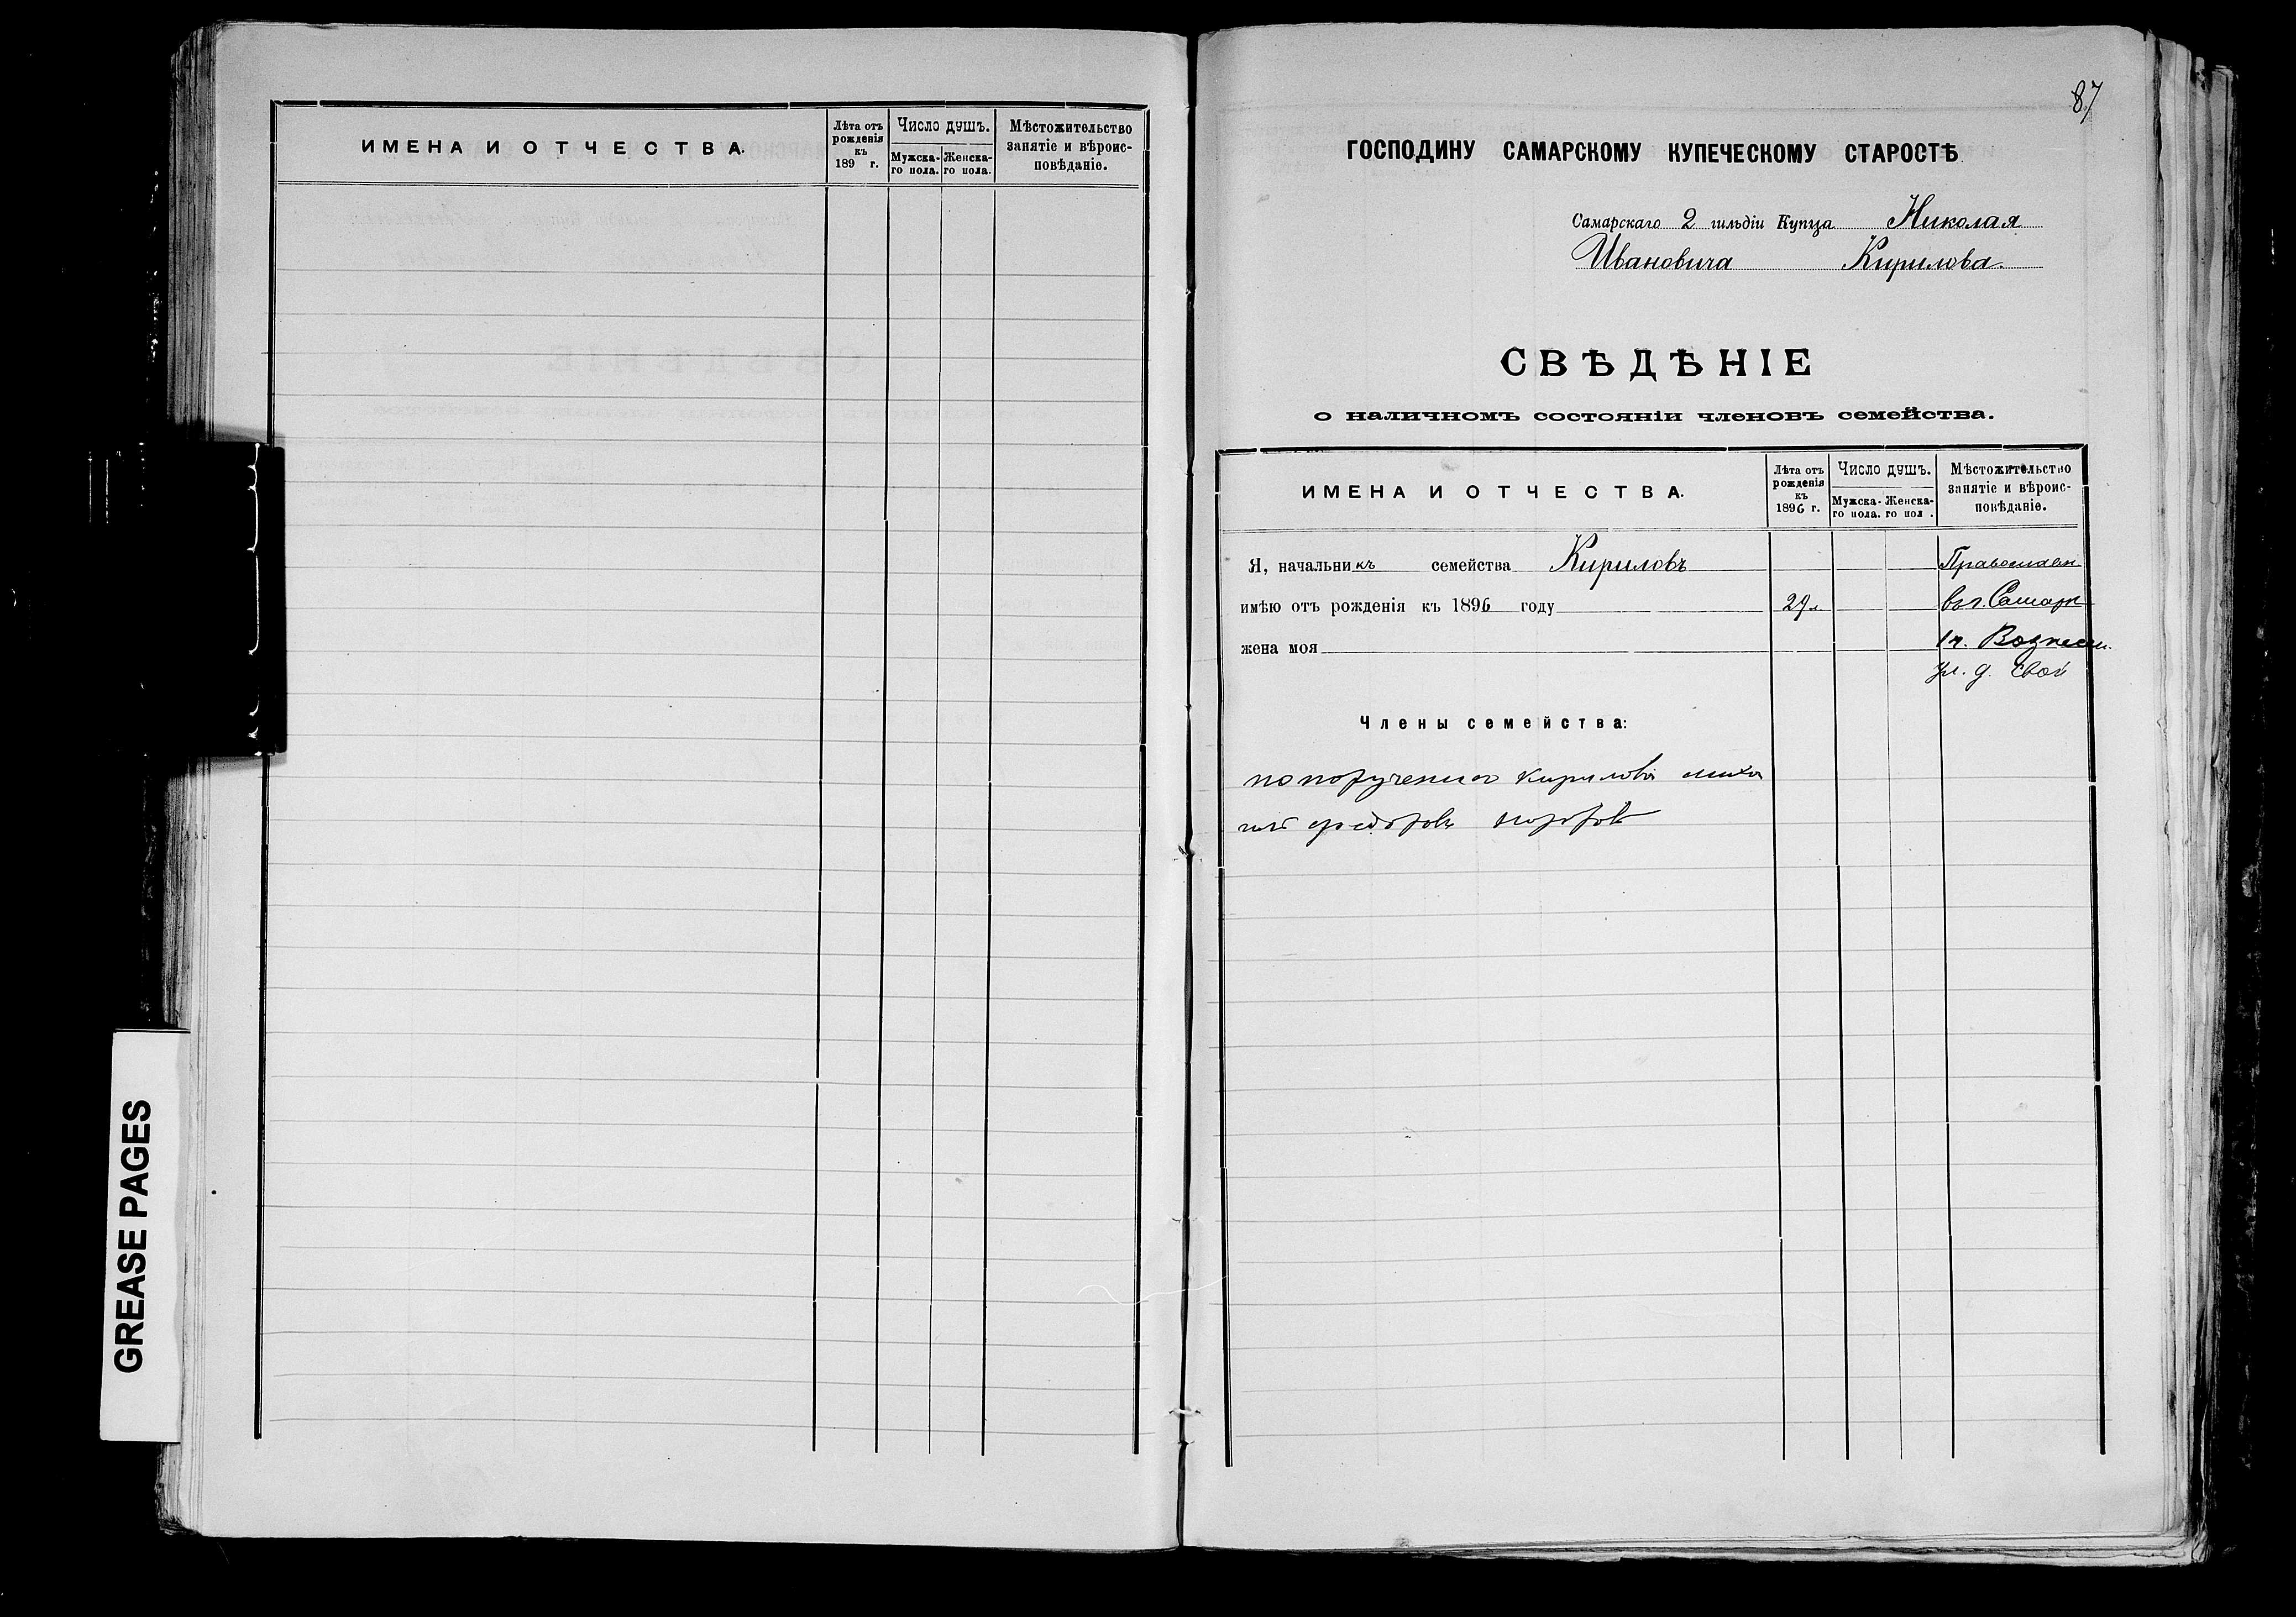 ИМЕНА И ОТЧЕСТВА.
Лѣта отъ рожденія къ 189 г.
Число душъ.
Мужска-го пола.
Женска-го пола.
Мѣстожительство занятіе и вѣроис-повѣданіе.
GREASE PAGES
87
ГОСПОДИНУ САМАРСКОМУ КУПЕЧЕСКОМУ СТАРОСТѢ
Самарскаго 2 гильдіи Купца Николая
Ивановича Кирилова.
СВѢДѢНІЕ
о наличномъ состояніи членовъ семейства.
ИМЕНА И ОТЧЕСТВА.
Лѣта отъ рожденія къ 1896 г.
Число душъ.
Мужска-го пола.
Женска-го пол .
Мѣстожительство занятіе и вѣроис-повѣданіе.
Я, начальникъ семейства Кириловъ Православн
имѣю отъ рожденія къ 1896 году 29 л. въ г. Самар
жена моя Вознесен.
ул. д. свой
Члены семейства:
по порученію Кирилова